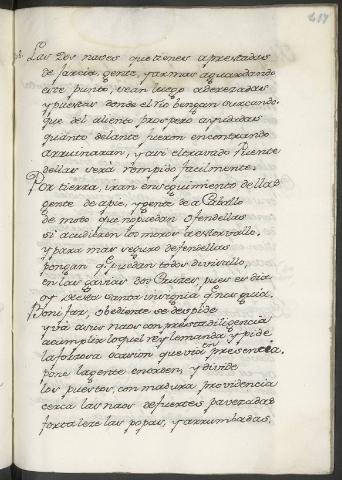 417
Las dos naues que tienes aprestadas
de jarcia, gente, y armas aguardando
este punto, sean luego adereçadas
y puestas donde el Rio bengan surcando.
que del aliento prospero ayudadas
quanto delante fueren encontrando
arruinaran, y asi el trauado Puente
dellas será rompido facilmente.
Por tierra, iran en seguimiento dellas
gente de apie, y gente de a Cauallo
de modo que no puedan ofendellas
si acudieren los moros a estoruallo,
y para mas seguro defendellas
pongan q. puedan todos diuisallo,
en las gauias dos Cruzes, pues es dia
oy de la Santa insignia q. nos guia.
Bonifaz, obediente se despide
y vá a sus naos con presta diligencia
a cumplir lo quel Rey le manda y pide
la forçosa ocasion que via en presencia.
pone la gente en orden, y diuide
los puestos, con madura prouidencia
cerca las naos de fuertes pauezadas
fortaleze las popas, y arrumbadas.